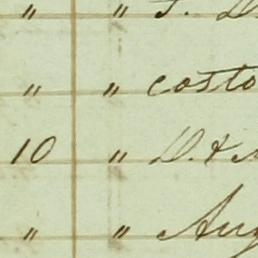 " "
" " costo
10 " D. &
" " Aug